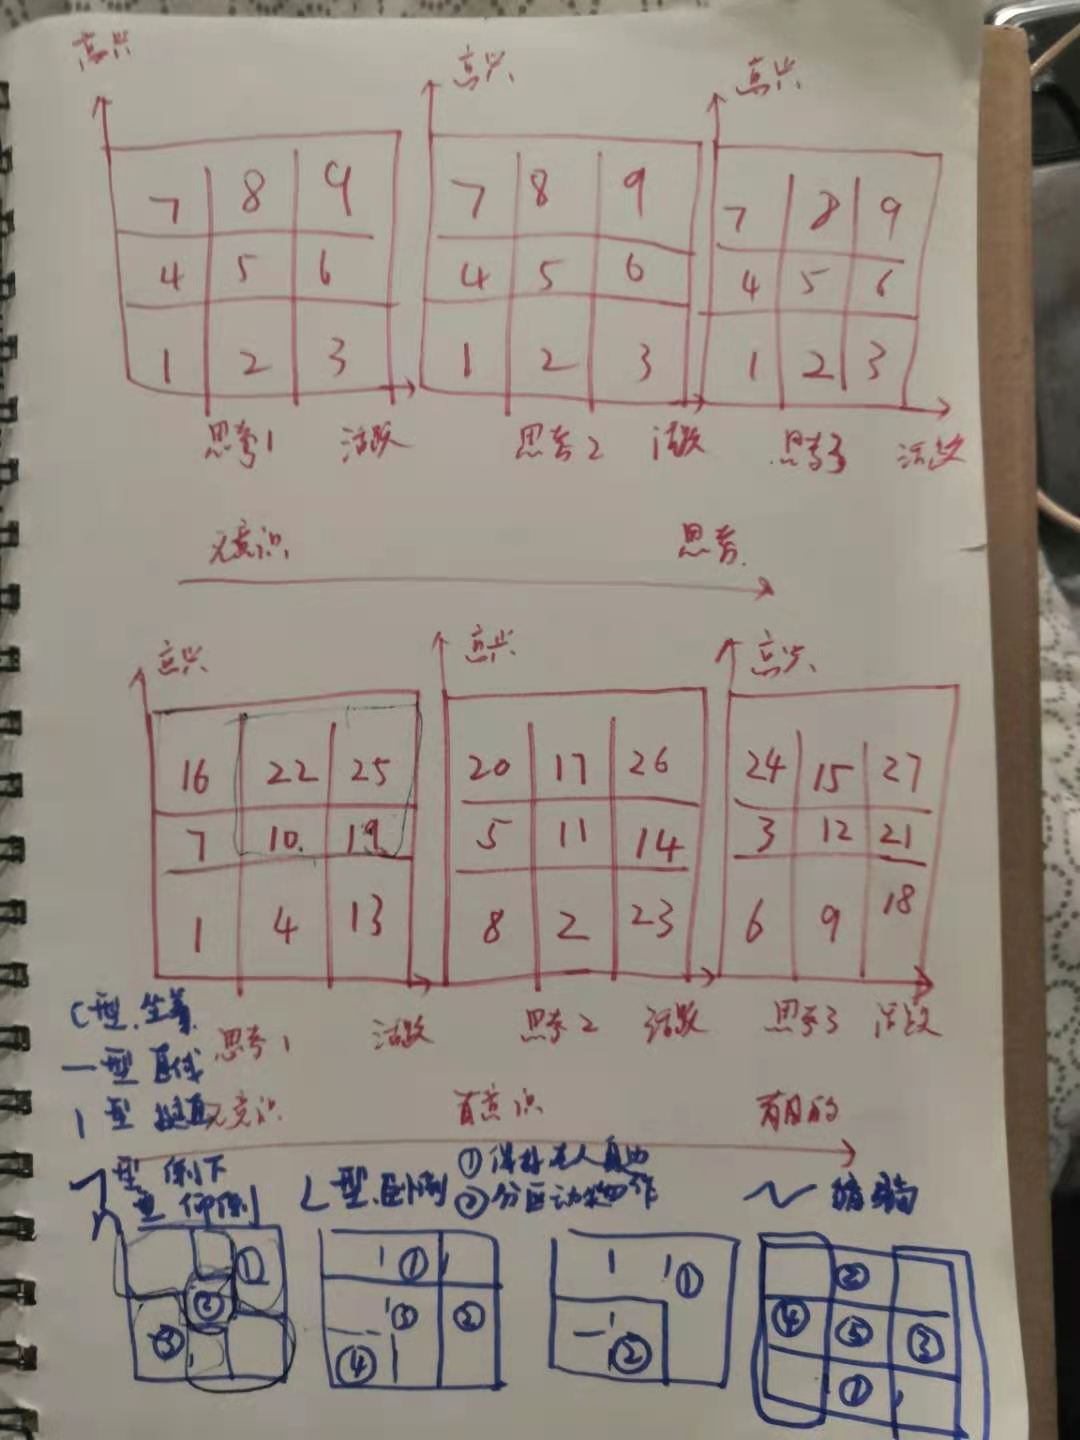 高兴 高兴 高兴
7 8 9 7 8 9 7 8 9
4 5 6 4 5 6 4 5 6
1 2 3 1 2 3 1 2 3
思考1 活跃 思考2 活跃 思考3 活跃
无意识 思考
高兴 高兴 高兴
16 22 25 20 17 26 24 15 27
7 10. 19 5 11 14 3 12 21
1 4 13 8 2 23 6 9 18
C型.坐着
思考1 活跃 思考2 活跃 思考3 活跃
一型 直线
1型 挺直
无意识 有意识 有目的
型 倒下
型 仰倒
L型.卧倒
①保持
②分区动物
~
① ① ① ②
② ③ ② ④ ⑤ ③
③ ④ ② ①